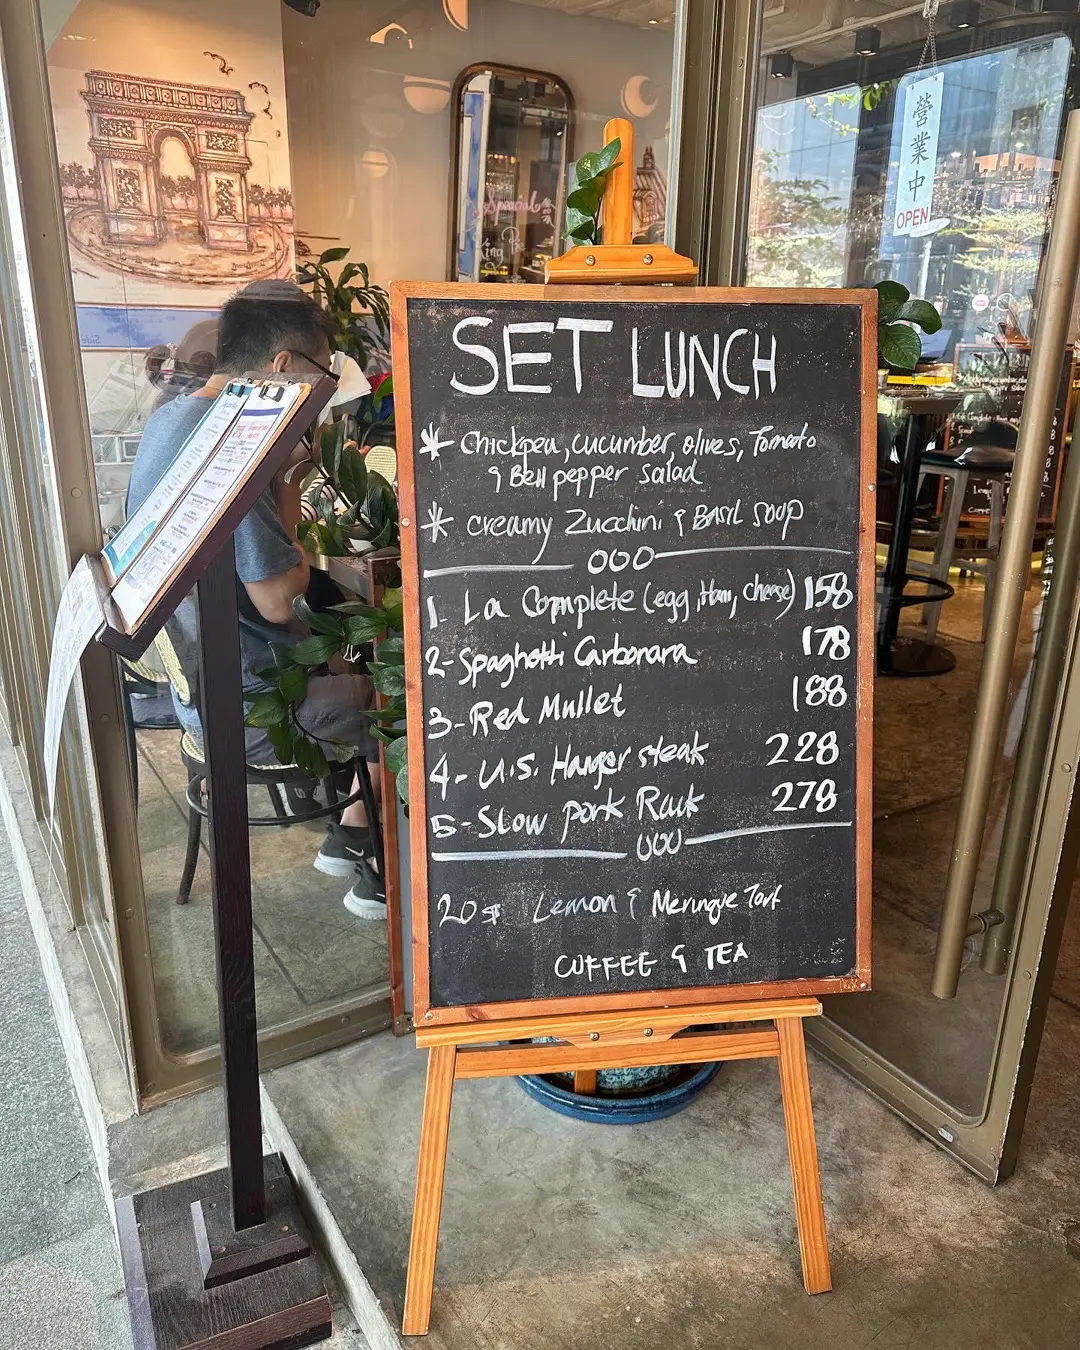 SET LUNCH
* Chickpea, cucumber, olives, Tomato
& Bell pepper salad
* creamy Zucchini & BASIL SOUP
000
1- La Complete (egg, Ham, cheese) 158
2- Spaghetti Carbonara 178
3- Red Mullet 188
4- U.S. Hanger steak 228
5- Slow pork Rack 278
000
20$ Lemon & Meringue Tart
COFFEE & TEA
營業中
OPEN
Special